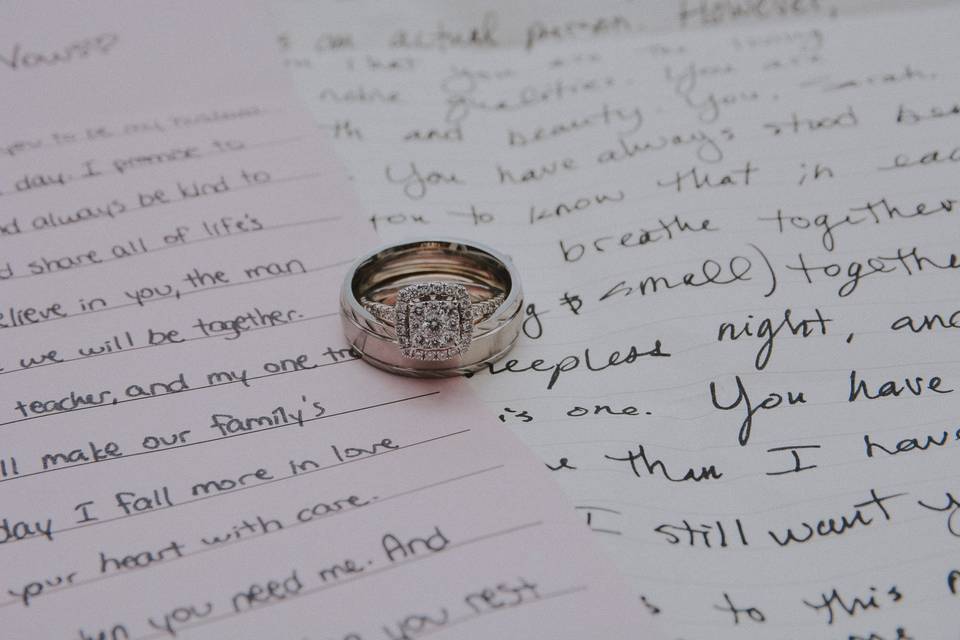 Vows
you to be my husband
day. I promise to
always be kind to
share all of life's
believe in you, the man
we will be together.
teacher, and my one
make our family's
day I fall more in love
your heart with care.
you need me. And
you rest
an actual person. However,
that you are the
qualities. You are
and beauty. You, Sarah,
You have always stood
you to know that in
breathe together
small) together
sleepless night, and
is one. You have
than I have
I still want
to this